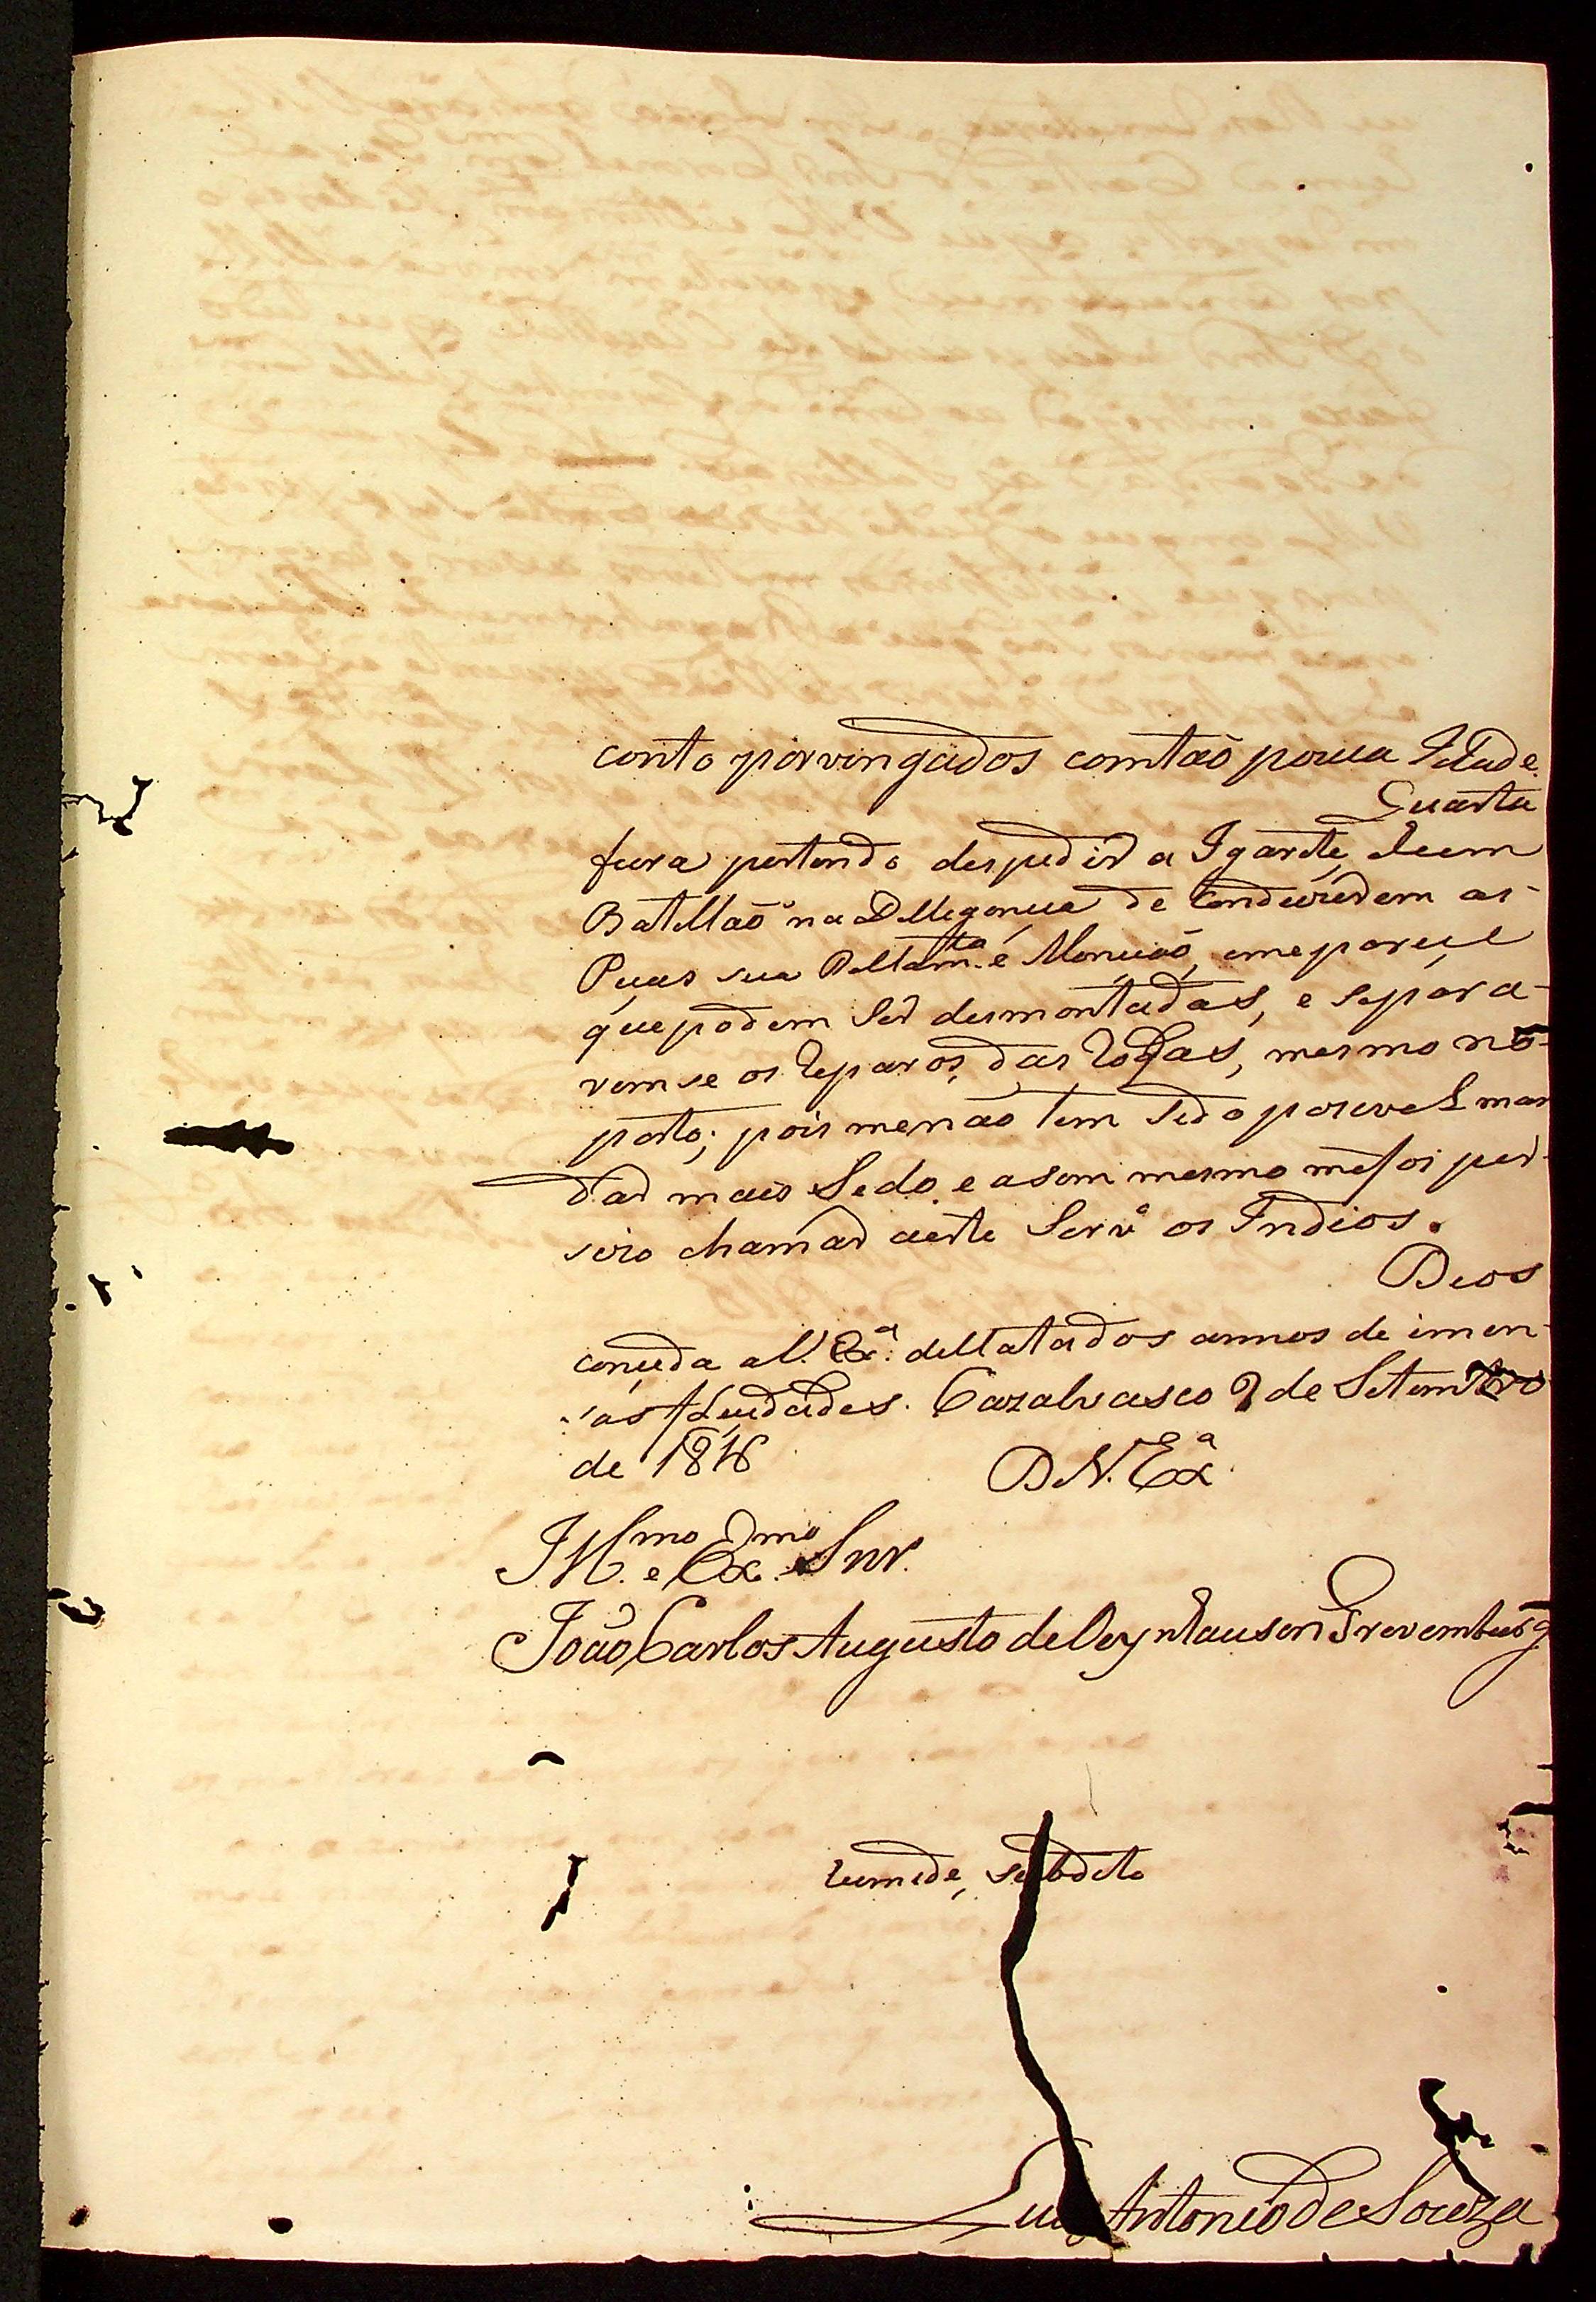 conto por vingados comtaõ pouca
Quarta
feira pertendo despedir a Igarite, e hum
Batellaõ na Delligencia de Condusirem as
Pesas sua Palam.ta e Moniçaõ, eme parece
que podem Ser desmontadas, e separa-
rem se os Reparos, das Rodas, mesmo no
porto; pois me naõ tem sido posivel man
dar mais Sedo, e asem mesmo me foi per-
siro chamar aeste Serv.o os Indios.
Deos
conceda a V. Ex.a delatados annos de imen-
sas fleucidades. Cazalvasco 2 de Setembro
de 1816
D V. Ex.a
Ill.mo e Ex.mo Snr.
João Carlos Augusto de Oeynhausen Grevemburg
Rumide, subdito
Luis Antonio de Souza